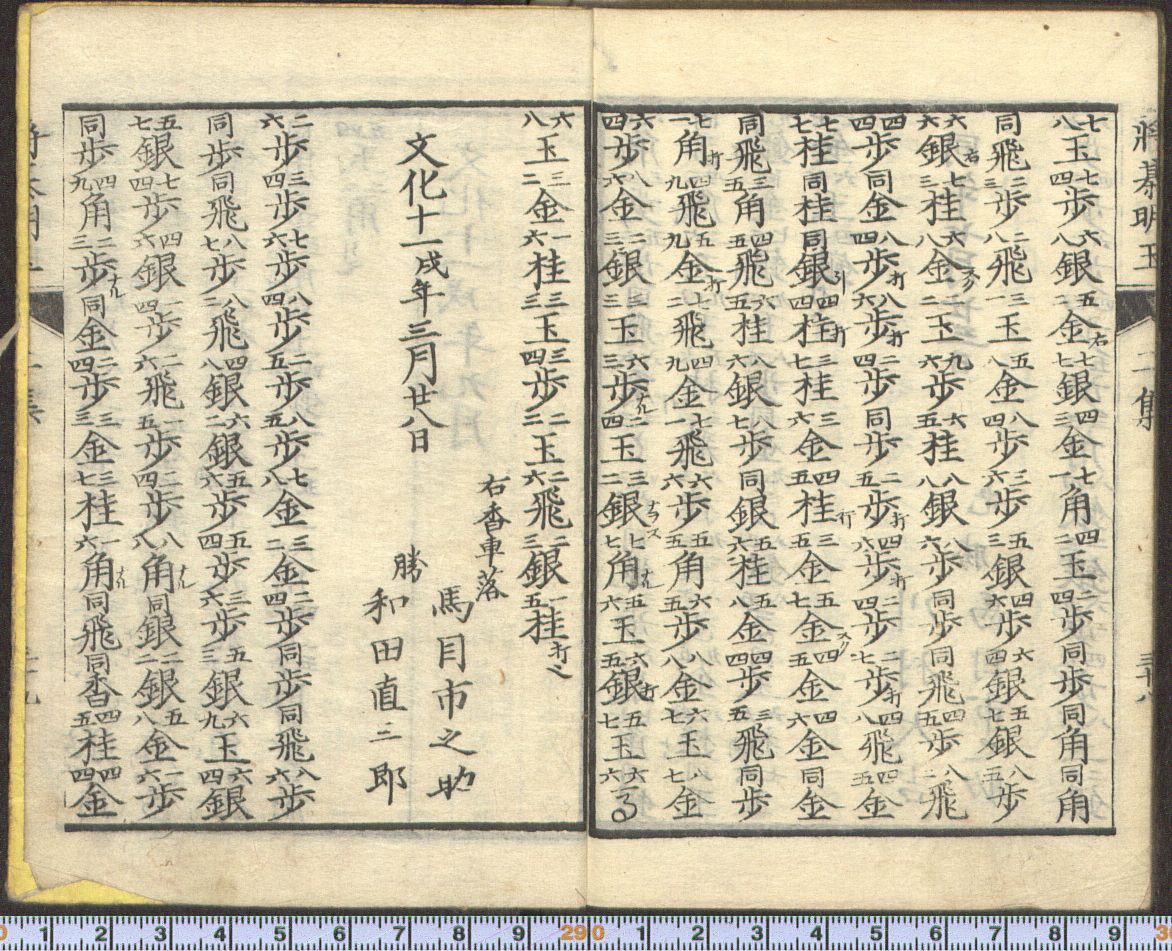 將棊明玉 二集 三十八
七八玉 七四歩 六八銀 五二金右 七七銀 四三金 七一角 四二玉 二四歩 同歩 同角 同角
同飛 二三歩 二八飛 三一玉 五八金 八四歩 三六歩 五三銀 四六歩 六四銀 五七銀 八五歩
六六銀右 七三桂 六八金スク 二二玉 九六歩 六五桂 八八銀 八六歩 同歩 同飛 四五歩 八二飛
四四歩 同金 八四歩打 八六歩打 二四歩 同歩 二五歩打 四六歩打 二四歩 二七歩打 四八飛 四五金
七七桂 同桂 同銀引 四四桂打 三七桂 三六金 四五桂行 三五金 五七金スク 四五金 四六金 同金
同飛 三五角 四五飛 六五桂 八六銀 七歩 同銀 五六桂 五八金 四四金 三五飛 同歩
七一角打 四九飛 五九金打 七二飛 四九金 七一飛 六六歩 五五角 六五歩 八八金 六七玉 八七金
六四歩 八六金 二三銀 三三玉 六三歩ナル 二四玉 三二銀ナラス 七七角ナル 五六玉 六五銀打 五七玉 六六馬
六八玉 三二金 一六桂 三三玉 三四歩 二三玉 二六飛 二三銀 一五桂打〆
右香車落
馬目市之助
文化十一戌年三月廿八日
勝 和田直二郎
二六歩 三四歩 七六歩 八四歩 二五歩 八五歩 七八金 三二金 二四歩 同歩 同飛 八六歩
同歩 同飛 八七歩 八三飛 四八銀 六二銀 五六歩 五四歩 三六歩 五三銀 六九玉 六四銀
五七銀 七四歩 四六銀 一四歩 二六飛 一五歩 二四歩 八八角ナル 同銀 二二銀 五八金 一六歩
同歩 四九角 二三歩ナル 同金 二四歩 三三金 三七桂 一六角ナル 同飛 同香 四五桂 四四金